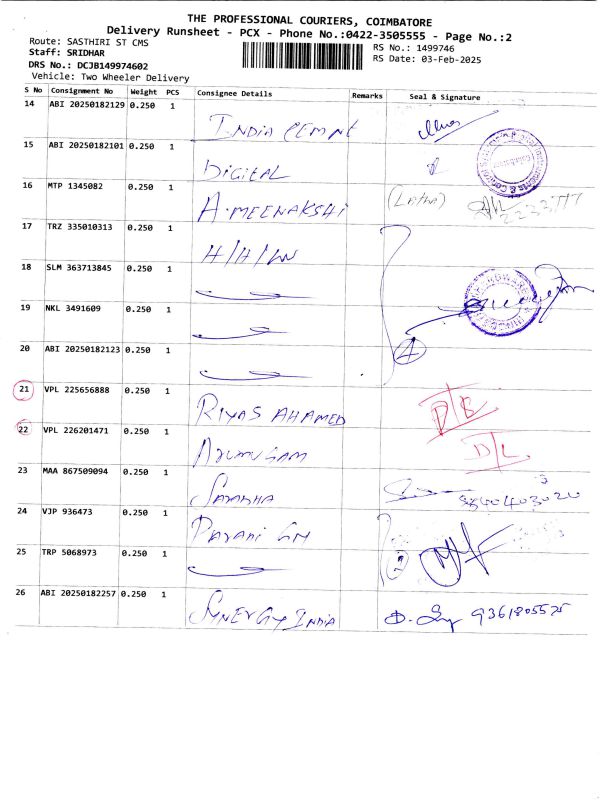 THE PROFESSIONAL COURIERS, COIMBATORE
Delivery Runsheet - PCX - Phone No.:0422-3505555 - Page No.:2
Route: SASTHIRI ST CMS
RS No.: 1499746
Staff: SRIDHAR
RS Date: 03-Feb-2025
DRS No.: DCJB149974602
Vehicle: Two Wheeler Delivery
S No Consignment No Weight PCS Consignee Details Remarks Seal & Signature
14 ABI 20250182129 0.250 1 INDIA CEMNE
15 ABI 20250182101 0.250 1 DIGITAL
16 MTP 1345082 0.250 1 A.MEENAKSHI (Latha)
17 TRZ 335010313 0.250 1 H/H/W
18 SLM 363713845 0.250 1
19 NKL 3491609 0.250 1
20 ABI 20250182123 0.250 1 4
21 VPL 225656888 0.250 1 RIYAS AHAMED D/L
22 VPL 226201471 0.250 1 ARUMUGAM D/L
23 MAA 867509094 0.250 1 SARADHA 9840403020
24 VJP 936473 0.250 1 PAVANI GM
25 TRP 5068973 0.250 1 2
26 ABI 20250182257 0.250 1 SYNERGY INDIA 9361805525